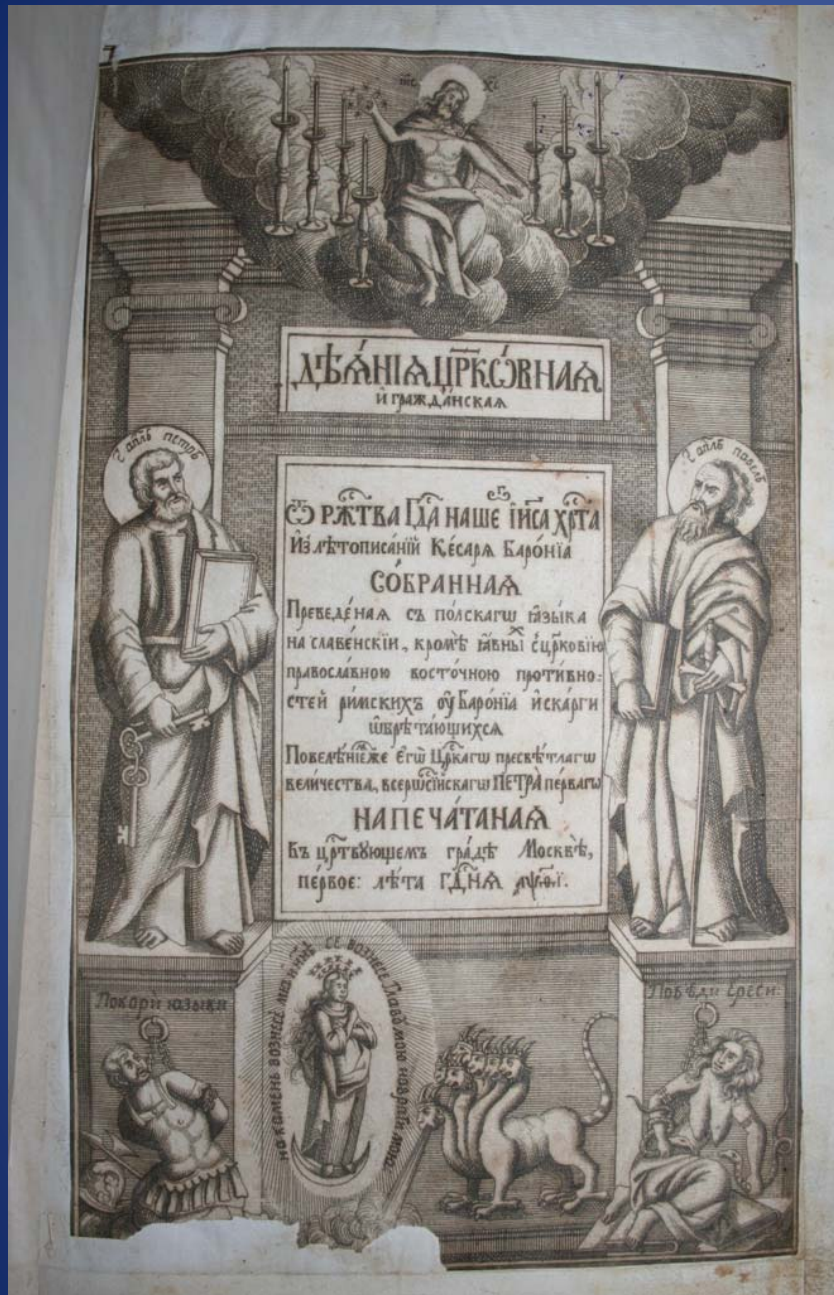 І҃ИС Х҃С
ДѢѦ́НІѦ ЦР҃КѠ́ВНАѦ
И҆ ГРАЖДА́НСКАѦ
С: а҆п҃лъ петръ
С: а҆п҃лъ павелъ
Ѿ РЖ҃ТВА Г҃ДА НАШЕГ І҆И҃СА ХР҃ТА
Из̾ лѣтописа́нїй Ке́саря Баро́нїа
СО́БРАННАѦ
Преведе́ная съ по́лскагѡ ꙗ҆зы́ка
на славе́нскїи, кромѣ̀ ꙗ҆́вныⷯ съ цр҃ковїю
правосла́вною восто́чною проти́вно:
стей ри́мскихъ оу҆ Баро́нїа и҆ ска́рги
ѡ҆брѣта́ющихся
Повелѣ́нїемже Е҆гѡ̀ Цр҃кагѡ пресвѣ́тлагѡ
вели́чества, всерѡссі́йскагѡ ПЕТРА̀ пе́рвагѡ
НАПЕЧА́ТАНАѦ
Въ цр҃твꙋющемъ гра́дѣ Москвѣ̀,
пе́рвое: лѣ́та Г҃ДНѦ ҂аѱѳ҃і.
на камень вознесе мѧ и ннѣ се вознесе главꙋ мою на враги моѧ
Покори ꙗзыки
Побѣди єреси.